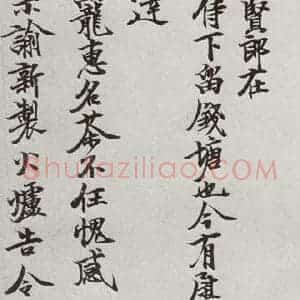 賢郎在
侍下留錢塘也今有
達
龍惠名茶不任愧感
諭新製小爐告令
Shufaziliao.COM